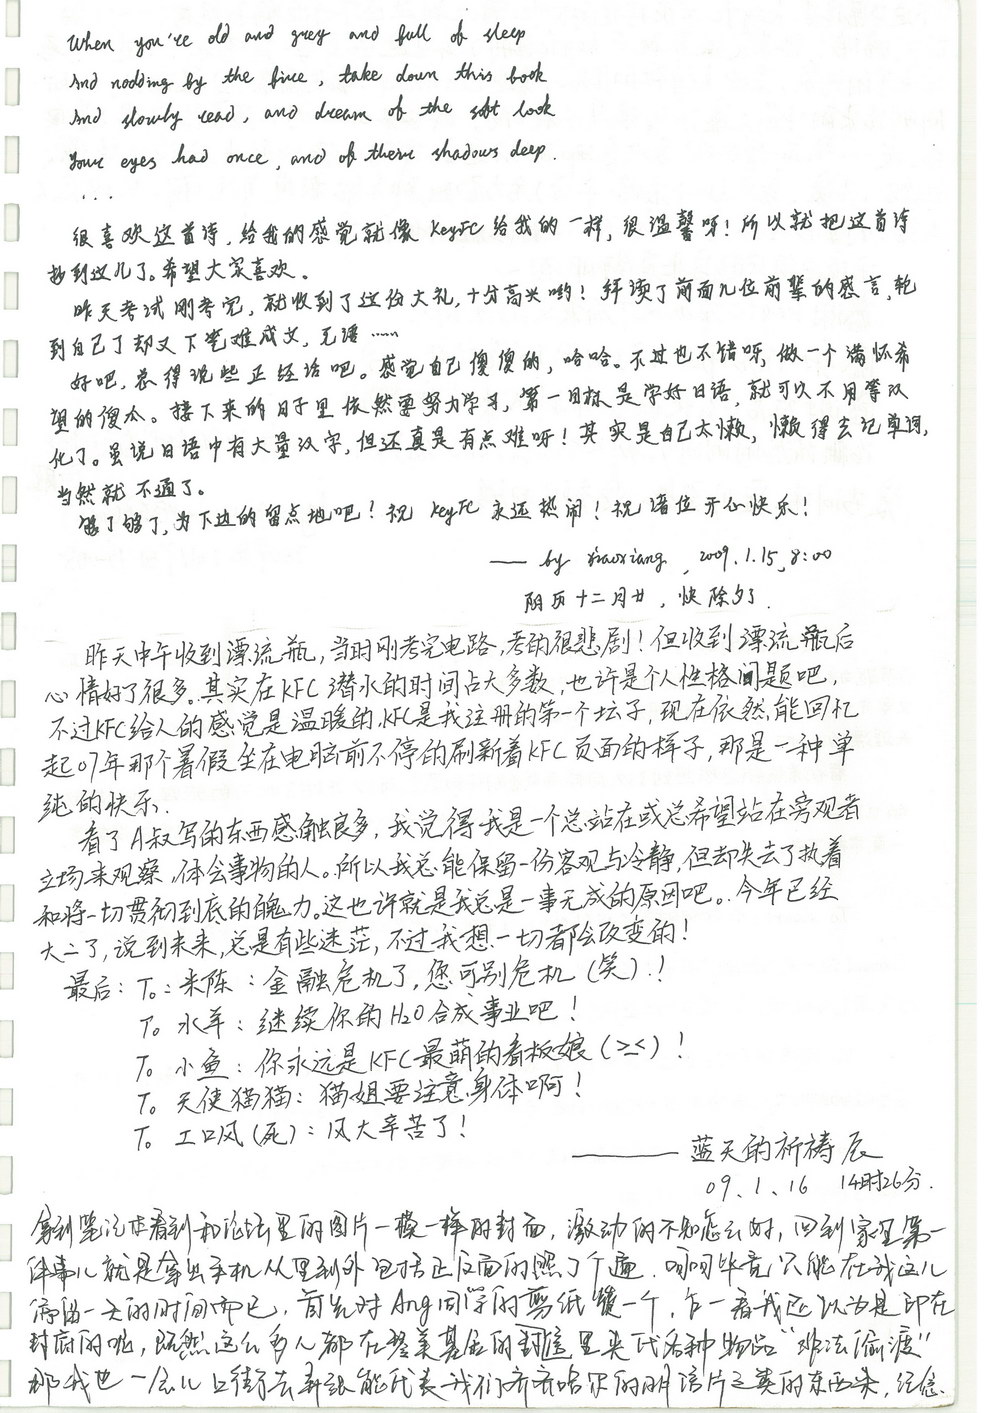 When you're old and grey and full of sleep
And nodding by the fire, take down this book
And slowly read, and dream of the soft look
Your eyes had once, and of there shadows deep.
...
很喜欢这首诗，给我的感觉就像 KeyFC 给我的一样，很温馨呀！所以就把这首诗
抄到这儿了。希望大家喜欢。
昨天考试刚考完，就收到了这份大礼，十分高兴哟！拜读了前面几位前辈的感言，轮
到自己了却又下笔难成文，无语……
好吧，总得说些正经话吧。感觉自己傻傻的，哈哈。不过也不错呀，做一个满怀希
望的傻瓜。接下来的日子里依然要努力学习，第一目标是学好日语，就可以不用等汉
化了。虽说日语中有大量汉字，但还真是有点难呀！其实是自己太懒，懒得去记单词，
当然就不通了。
够了够了，为下边的留点地吧！祝 KeyFC 永远热闹！祝诸位开心快乐！
—— by xiaoxiang, 2009.1.15, 8:00
阴历十二月廿，快除夕了.
昨天中午收到漂流瓶，当时刚考完电路，考的很悲剧！但收到漂流瓶后
心情好了很多。其实在KFC潜水的时间占大多数，也许是个人性格问题吧，
不过KFC给人的感觉是温暖的，KFC是我注册的第一个坛子，现在依然能回忆
起07年那个暑假坐在电脑前不停的刷新着KFC页面的样子，那是一种单
纯的快乐.
看了A叔写的东西感触良多，我觉得我是一个总站在或总希望站在旁观者
立场来观察、体会事物的人。所以我总能保留一份客观与冷静，但却失去了执着
和将一切贯彻到底的魄力。这也许就是我总是一事无成的原因吧。今年已经
大二了，说到未来，总是有些迷茫，不过我想一切都会改变的！
最后：To：米陈：金融危机了，您可别危机（笑）！
To 水羊：继续你的H2O合成事业吧！
To 小鱼：你永远是KFC最萌的看板娘（≥≤）！
To 天使猫猫：猫姐要注意身体啊！
To 工口风（死）：风大辛苦了！
—— 蓝天的祈祷 辰
09.1.16 14时26分.
拿到笔记本看到和论坛里的图片一模一样的封面，激动的不知怎么时，回到家里第一
件事儿就是拿出手机从里到外包括正反面的照了个遍. 呵呵毕竟只能在我这儿
停留一天的时间而已，首先对Ang同学的剪纸赞一个，乍一看我还以为是印在
封底的呢，既然这么多人都在整美基层的封信里夹代各种物品“难法偷渡”
那我也一会儿上街去弄张能代表我们齐齐哈尔的明信片之类的东西来，经